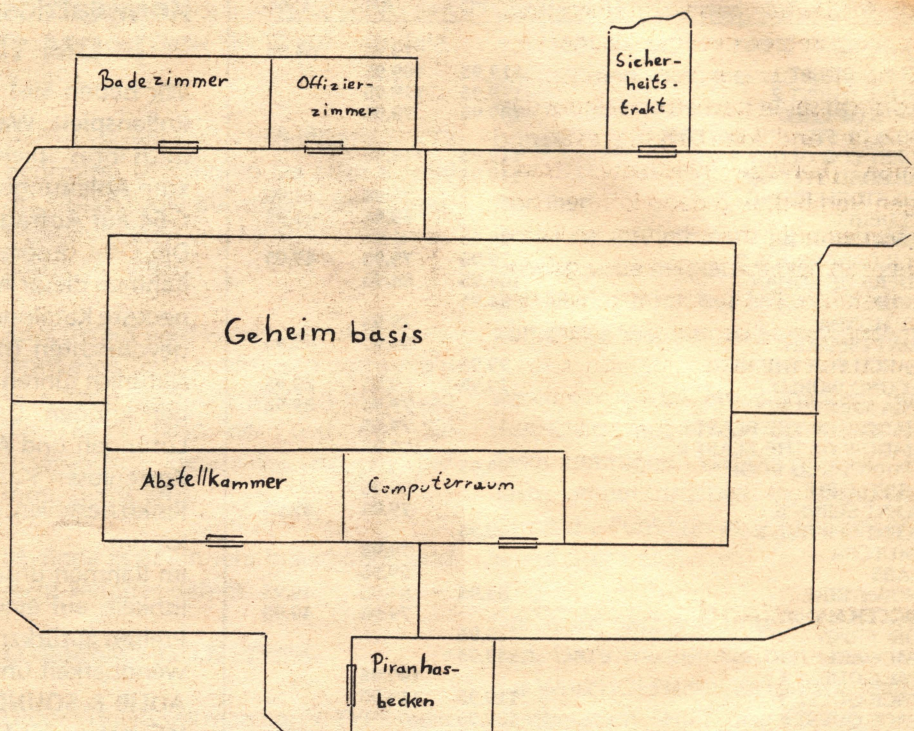 Badezimmer
Offizier-
zimmer
Sicher-
heits-
trakt
Geheim basis
Abstellkammer
Computerraum
Piranhas-
becken